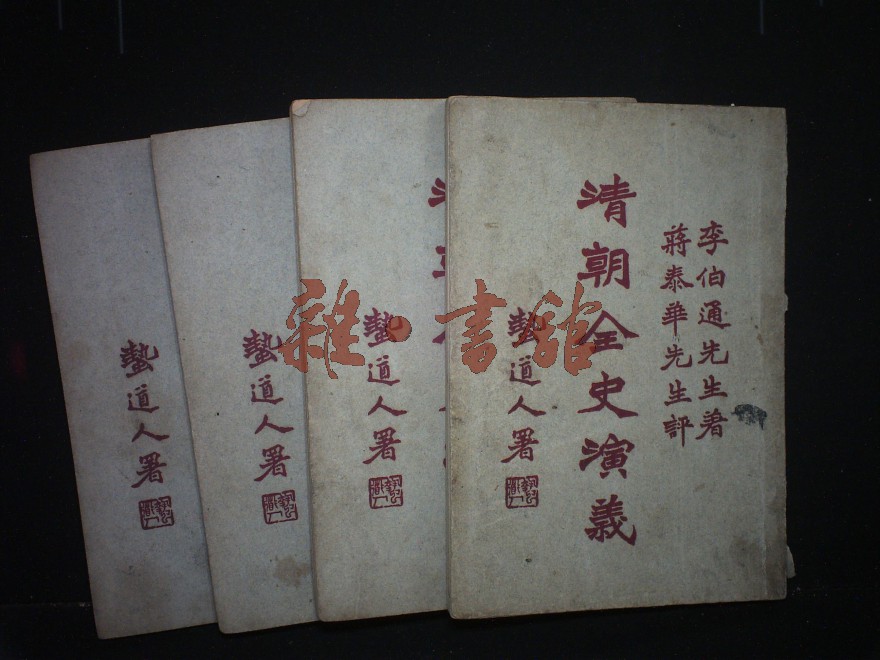 李伯通先生著
蔣泰華先生評
清朝全史演義
蟄道人署
蟄道人署
蟄道人署
蟄道人署
雜·書館